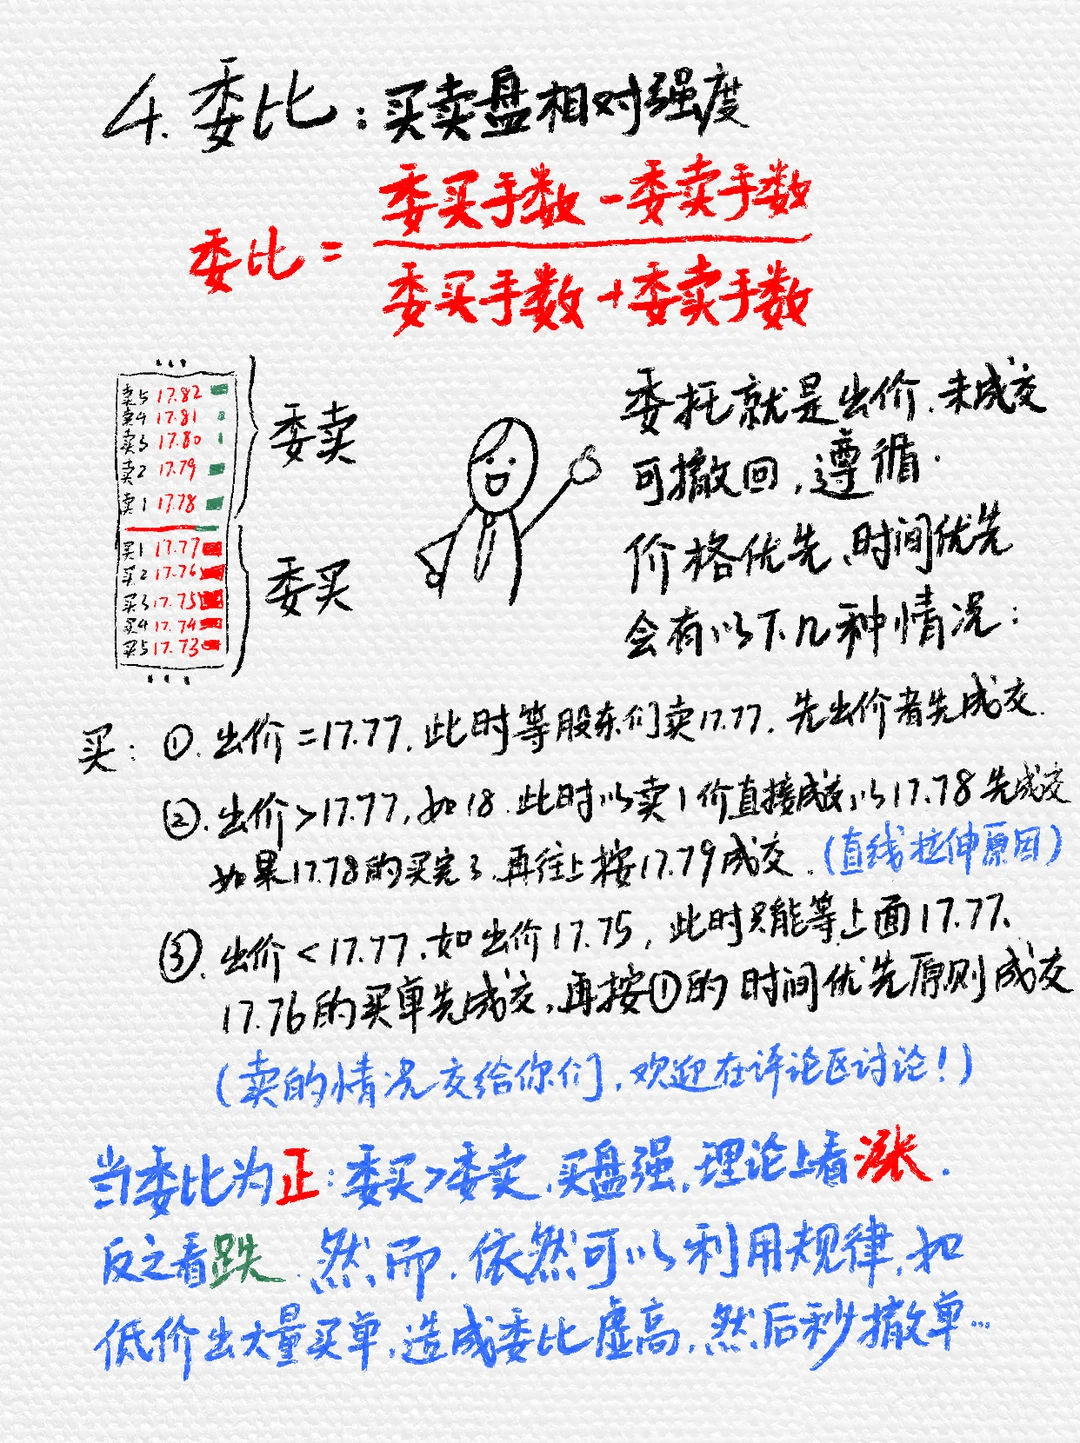 4. 委比：买卖盘相对强度
委买手数-委卖手数
委比=
委买手数+委卖手数
...
卖5 17.82
卖4 17.81
卖3 17.80
卖2 17.79
卖1 17.78
委卖
买1 17.77
买2 17.76
买3 17.75
买4 17.74
买5 17.73
委买
...
委托就是出价，未成交
可撤回，遵循
价格优先、时间优先
会有以下几种情况：
买：①.出价=17.77，此时等股东们卖17.77，先出价者先成交.
②.出价>17.77，如18.此时以卖1价直接成交，以17.78先成交
如果17.78的买完了，再往上按17.79成交.（直线拉伸原因）
③.出价<17.77，如出价17.75，此时只能等上面17.77、
17.76的买单先成交，再按①的时间优先原则成交
（卖的情况交给你们，欢迎在评论区讨论！）
当委比为正：委买>委卖，买盘强，理论上看涨.
反之看跌.然而，依然可以利用规律，如
低价出大量买单，造成委比虚高，然后秒撤单...